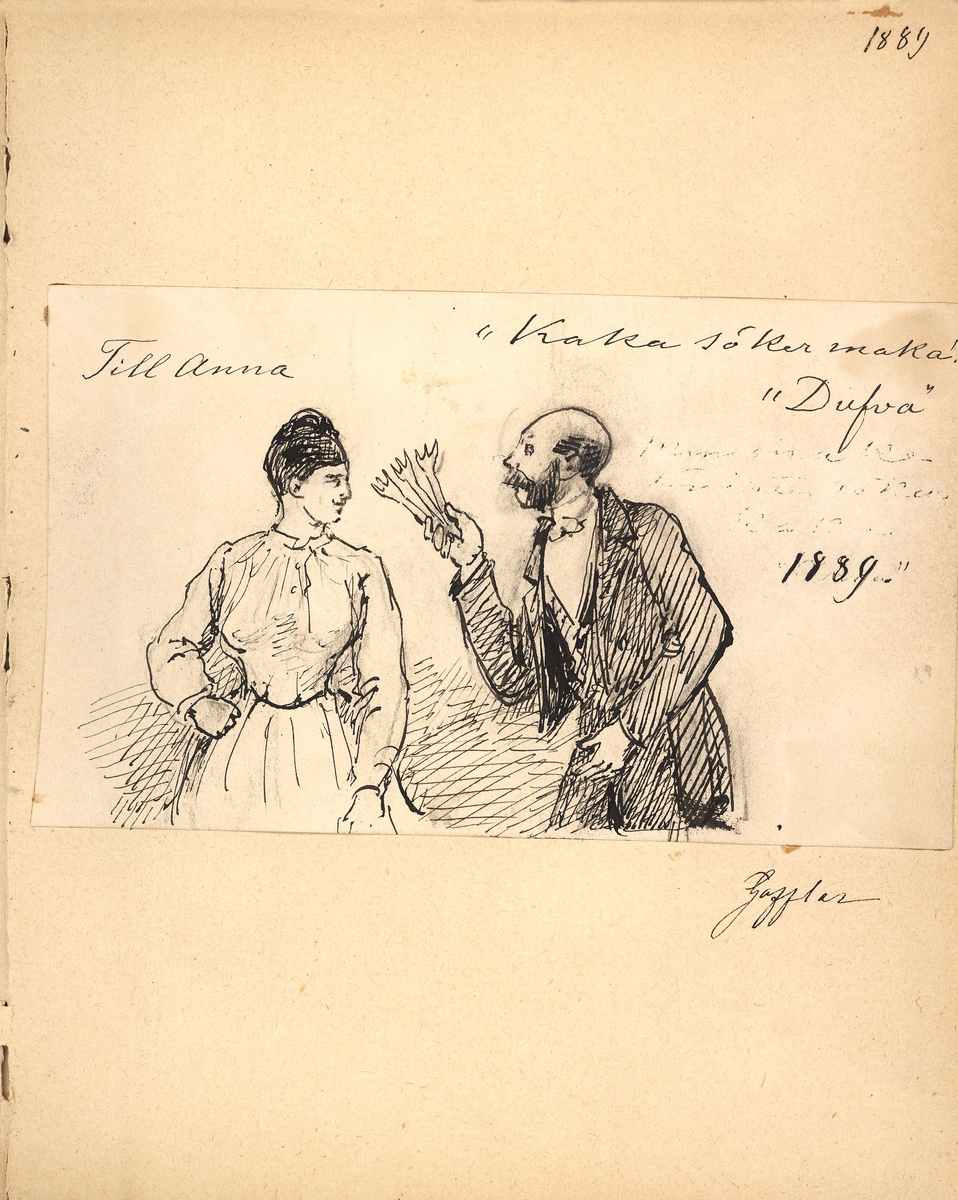 1889
Till Anna
"Kaka söker maka!
"Dufva"
1889."
Gafflar